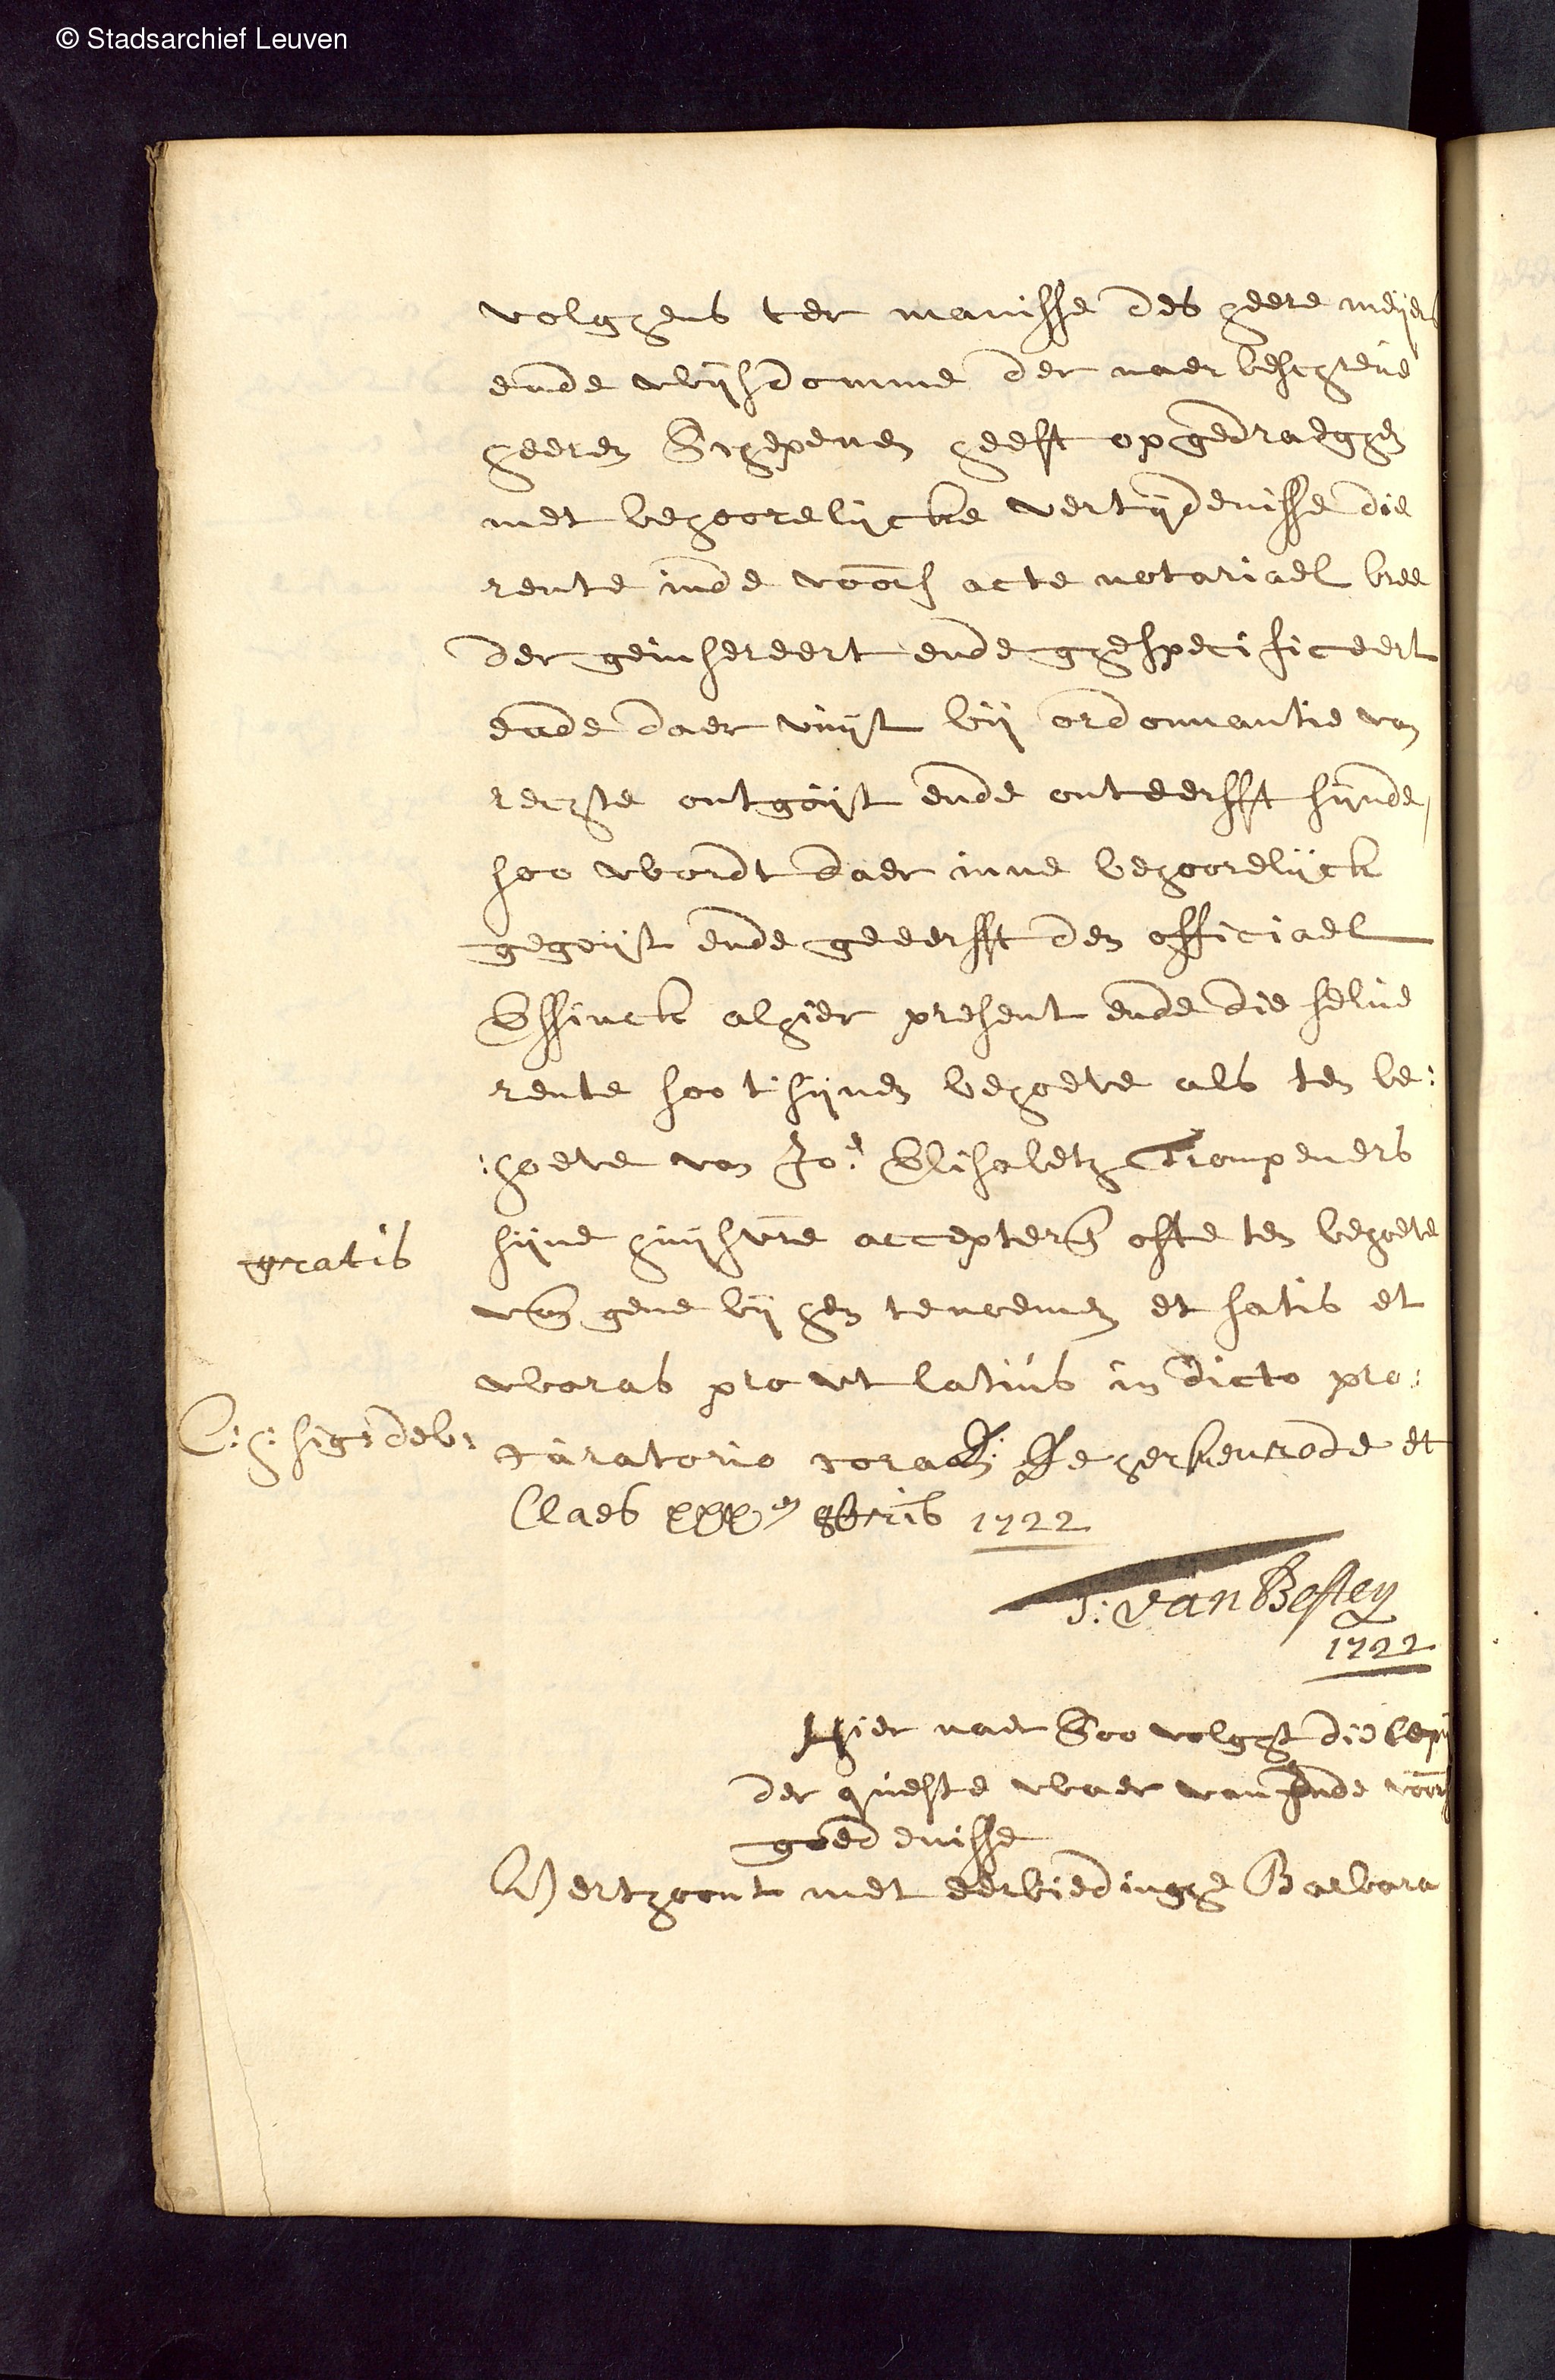 © Stadsarchief Leuven
volghens ter manisse des heere meijers
ende wijsdomme der naer beschreve
heeren Schepenen heeft opgedraeghen
met behoorelijcke vertijdenisse die
rente inde voors acte notariael bree
der geinsereert ende ghespecificeert
ende daer uuijt bij ordonnantie van
rechte ontgoijt ende onteerfft sijnde,
soo wordt daer inne behoorelijck
gegoijt ende geeerfft den officiael
Essinck alhier present ende die selve
rente soo t'sijnen behoeve als ten be:
:hoeve van Jo.e Elisabeth Trompeners
gratis
sijne huijsvre accepteren ofte ten behoeve
van gene bij hen te noemen et satis et
waras pro ut latius in dicto pro:
C: s: sig: deb:
curatorio coram Hegherkenrode et
Claes xxx 9bris 1722
J: van Bostey
1722
Hier naer Soo volght die copij
der queste waer van inde voors
goedenisse
Verthoont met eerbiedinghe Barbara